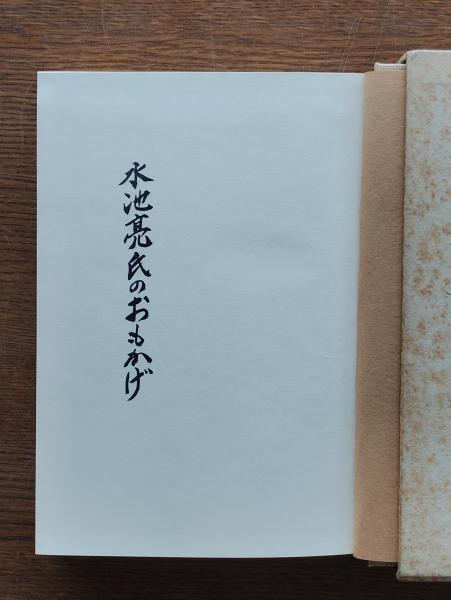 水池亮氏のおもかげ